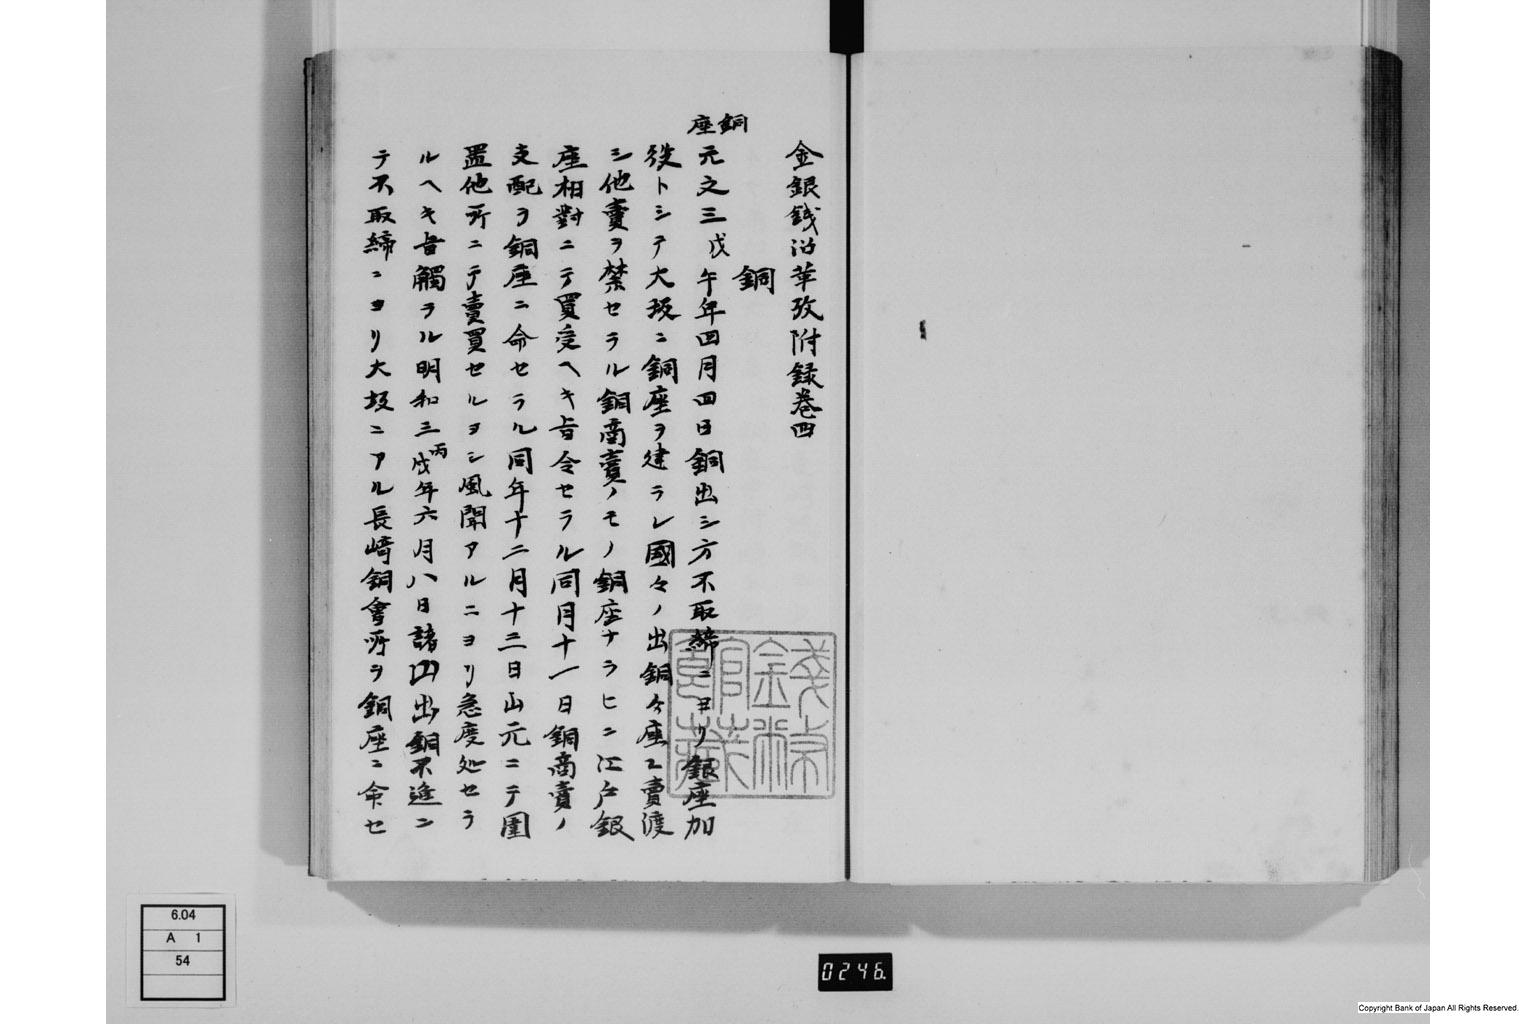 金銀銭沿革攷附録巻四
銅
銅座
元文三戊午年四月四日銅出シ方不取締ニヨリ銀座加
役トシテ大坂ニ銅座ヲ建ラレ國々ノ出銅々座エ賣渡
シ他賣ヲ禁セラル銅商賣ノモノ銅座ナラヒニ江戸銀
座相對ニテ買受ヘキ旨令セラル同月十一日銅商賣ノ
支配ヲ銅座ニ命セラル同年十二月十三日山元ニテ圍
置他所ニテ賣買セルヨシ風聞アルニヨリ急度処セラ
ルヘキ旨觸ラル明和三丙戌年六月八日諸山出銅不進ニ
テ不取締ニヨリ大坂ニアル長崎銅會所ヲ銅座ニ命セ
錢幣館藏
6.04
A 1
54
0246.
Copyright Bank of Japan All Rights Reserved.